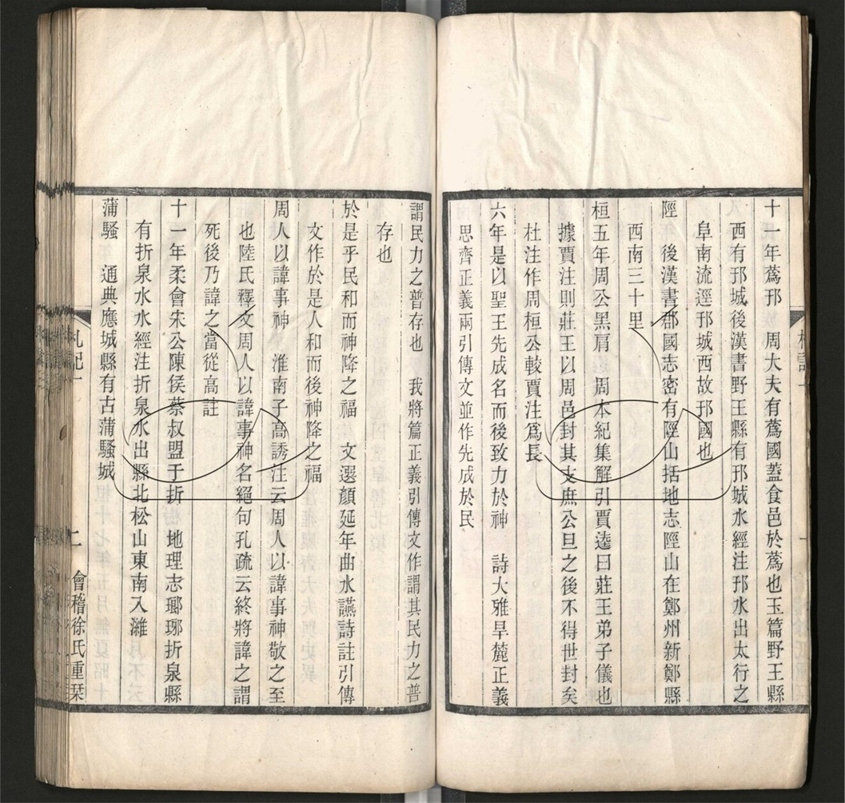 十一年蔿邘　周大夫有蔿國蓋食邑於蔿也玉篇野王縣
西有邘城後漢書野王縣有邘城水經注邘水出太行之
阜南流逕邘城西故邘國也
陘　後漢書郡國志密有陘山括地志陘山在鄭州新鄭縣
西南三十里
桓五年周公黑肩　周本紀集解引賈逵曰莊王弟子儀也
據賈注則莊王以周邑封其支庶公旦之後不得世封矣
杜注作周桓公較賈注爲長
六年是以聖王先成名而後致力於神　詩大雅旱麓正義
思齊正義兩引傳文並作先成於民
謂民力之普存也　我將篇正義引傳文作謂其民力之普
存也
於是乎民和而神降之福　文選顏延年曲水讌詩註引傳
文作於是人和而後神降之福
周人以諱事神　淮南子高誘注云周人以諱事神敬之至
也陸氏釋文周人以諱事神名絕句孔疏云終將諱之謂
死後乃諱之當從高註
十一年柔會宋公陳侯蔡叔盟于折　地理志瑯琊折泉縣
有折泉水水經注折泉水出縣北松山東南入濰
蒲騷　通典應城縣有古蒲騷城
札記一
二
會稽徐氏重栞